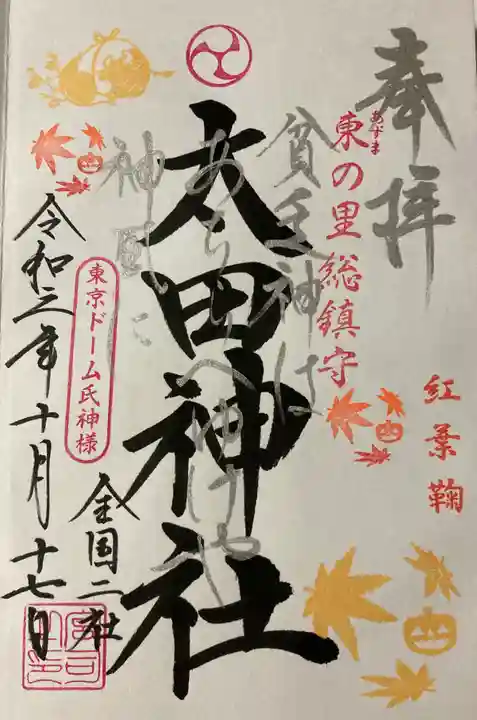 奉拝
東の里総鎮守
あずま
紅葉鞠
貧乏神は
あちらへゆけや
神風に
太田神社
東京ドーム氏神様
全国二社
令和元年十月十七日
宮司之印